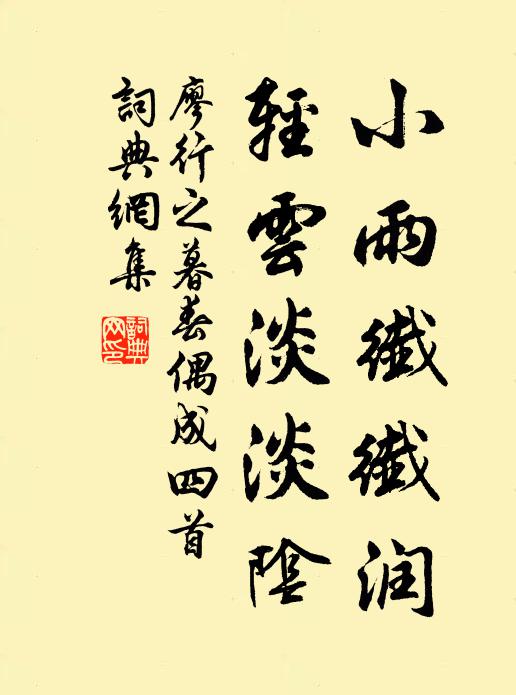 小雨纖纖润
輕雲淡淡陰
廖行之暮春偶成四首
詞典網集
詞典
网印